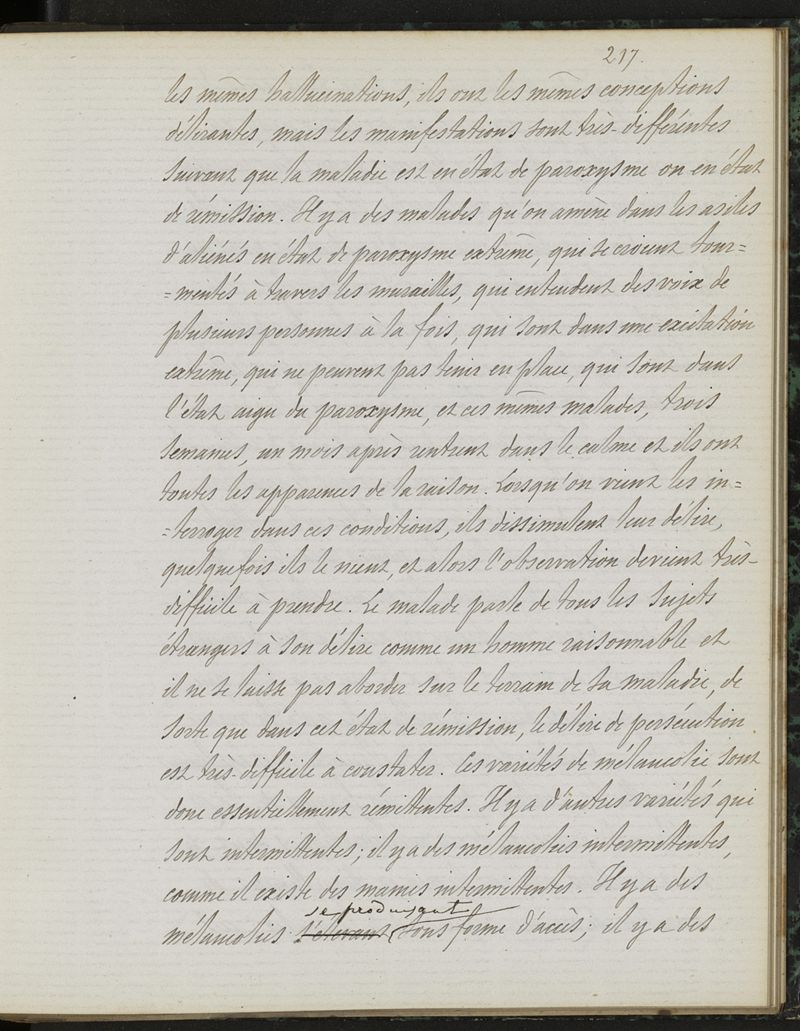 217.
les mêmes hallucinations, ils ont les mêmes conceptions
délirantes, mais les manifestations sont très-différentes
suivant que la maladie est en état de paroxysme ou en état
de rémission. Il y a des malades qu'on amène dans les asiles
d'aliénés en état de paroxysme extrême, qui se croient tour=
=mentés à travers les murailles, qui entendent des voix de
plusieurs personnes à la fois, qui sont dans une excitation
extrême, qui ne peuvent pas tenir en place, qui sont dans
l'état aigu du paroxysme, et ces mêmes malades, trois
semaines, un mois après rentrent dans le calme et ils ont
toutes les apparences de la raison. Lorsqu'on vient les in=
=terroger dans ces conditions, ils dissimulent leur délire,
quelquefois ils le nient, et alors l'observation devient très-
difficile à prendre. Le malade parle de tous les sujets
étrangers à son délire comme un homme raisonnable et
il ne se laisse pas aborder sur le terrain de sa maladie, de
sorte que dans cet état de rémission, le délire de persécution
est très-difficile à constater. Ces variétés de mélancolie sont
donc essentiellement rémittentes. Il y a d'autres variétés qui
sont intermittentes; il y a des mélancolies intermittentes,
comme il existe des manies intermittentes. Il y a des
se produisant
mélancolies sous forme d'accès; il y a des